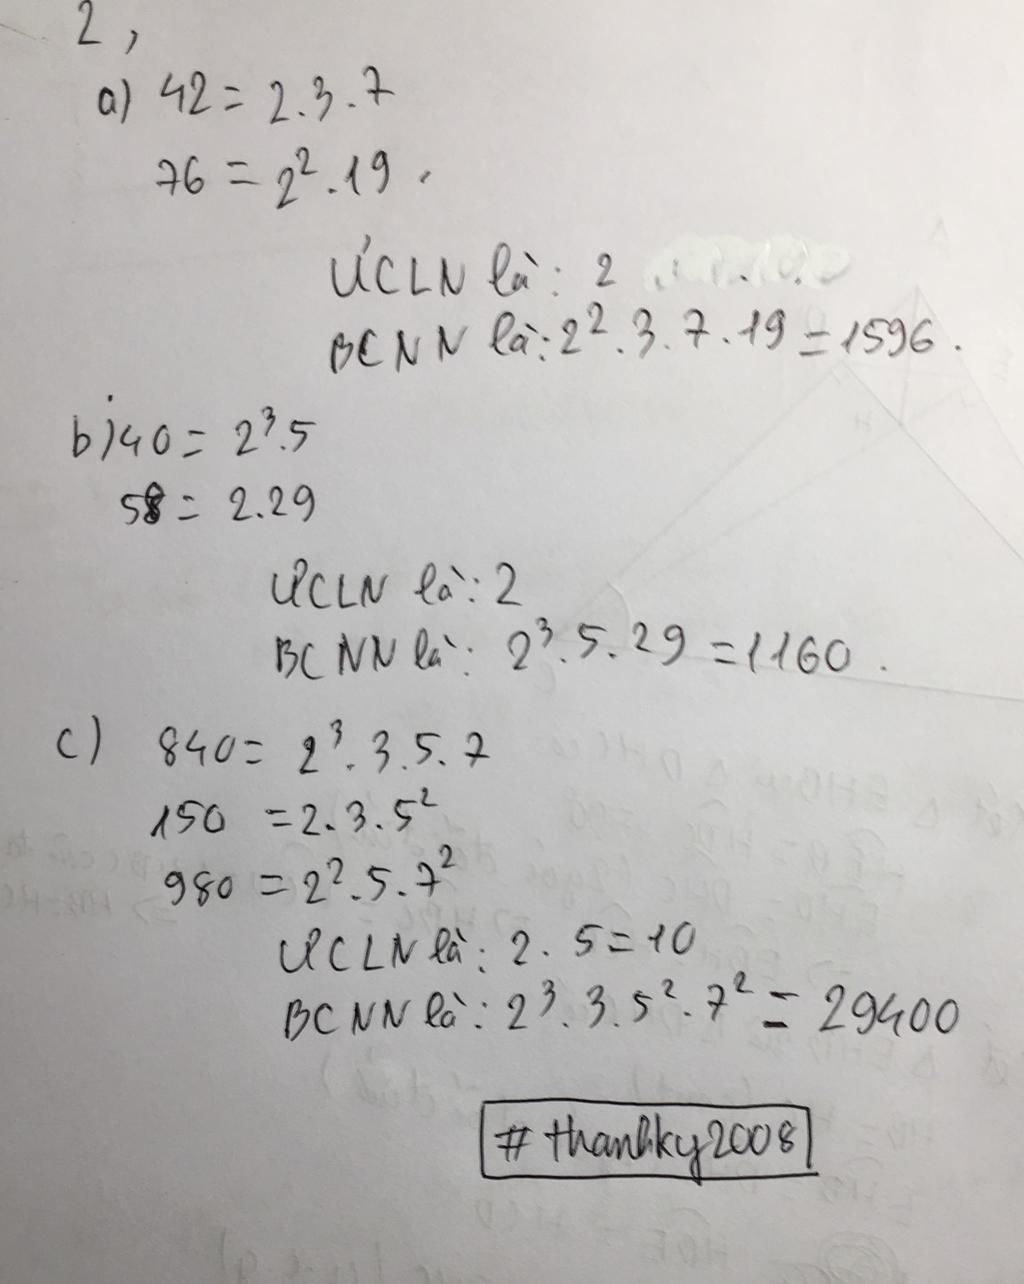 2,
a) 42 = 2.3.7
76 = 2².19.
ƯCLN là: 2
BCNN là: 2².3.7.19 = 1596.
b) 40 = 2³.5
58 = 2.29
ƯCLN là: 2
BCNN là: 2³.5.29 = 1160.
c) 840 = 2³.3.5.7
150 = 2.3.5²
980 = 2².5.7²
ƯCLN là: 2.5 = 10
BCNN là: 2³.3.5².7² = 29400
# thanhky2008